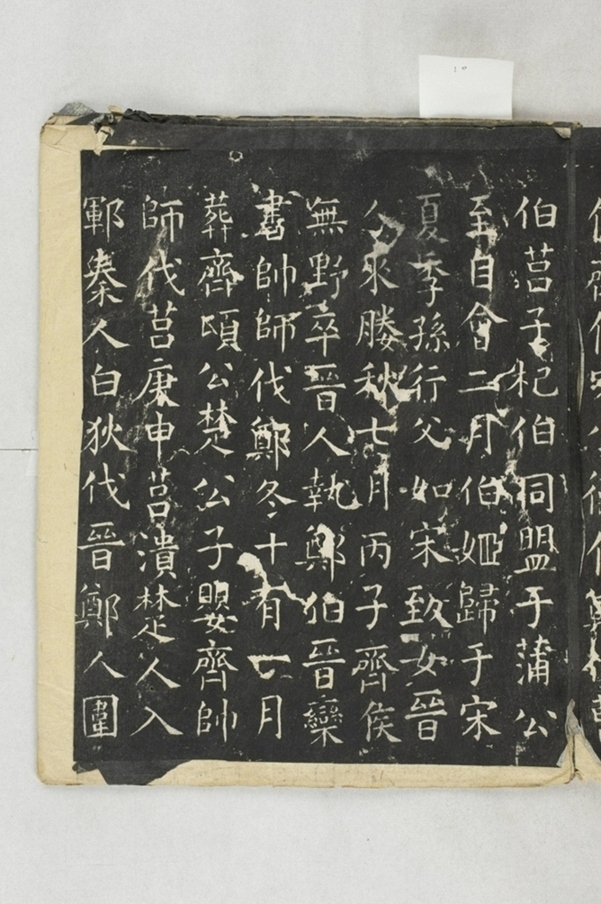 伯莒子杞伯同盟于蒲公
至自會二月伯姬歸于宋
夏季孫行父如宋致女晉
人來媵秋七月丙子齊侯
無野卒晉人執鄭伯晉欒
書帥師伐鄭冬十有一月
葬齊頃公楚公子嬰齊帥
師伐莒庚申莒潰楚人入
鄆秦人白狄伐晉鄭人圍